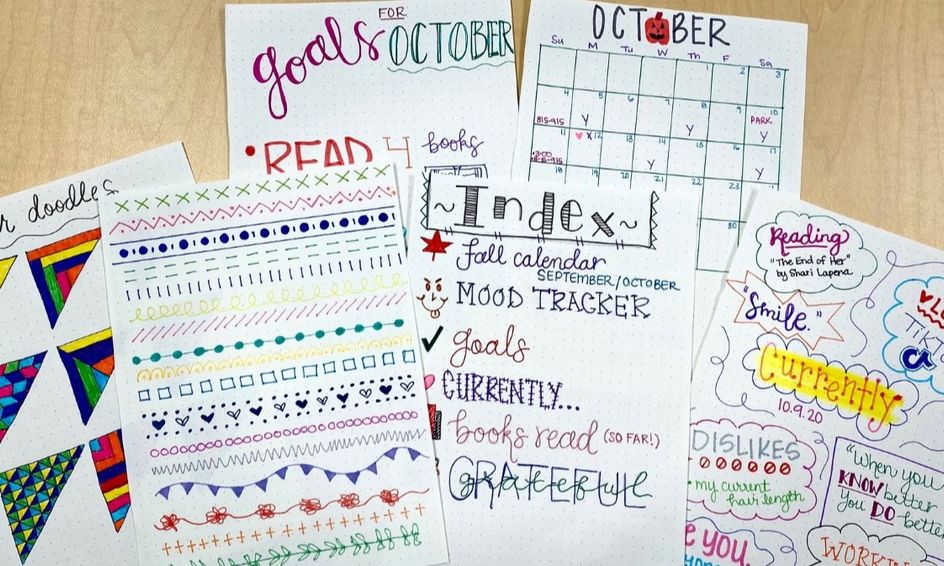 goals
FOR
OCTOBER
• READ 4 books
OCTOBER
Su M Tu W Th F Sa
2 3
4 5 6 7 8 9 10
815-915 Y Y PARK Y
11 12 13 14 15 16 17
X Y Y
18 19 20 21 22 23
30
r doodles
~Index~
fall calendar
SEPTEMBER/OCTOBER
MOOD TRACKER
goals
CURRENTLY...
books read (SO FAR!)
GRATEFUL
grateful
Reading
"The End of Her"
by Shari Lapena
"Smile."
Currently
10.9.20
DISLIKES
• my current
hair length
"When you
KNOW better
You DO better
e you.
WORKIN